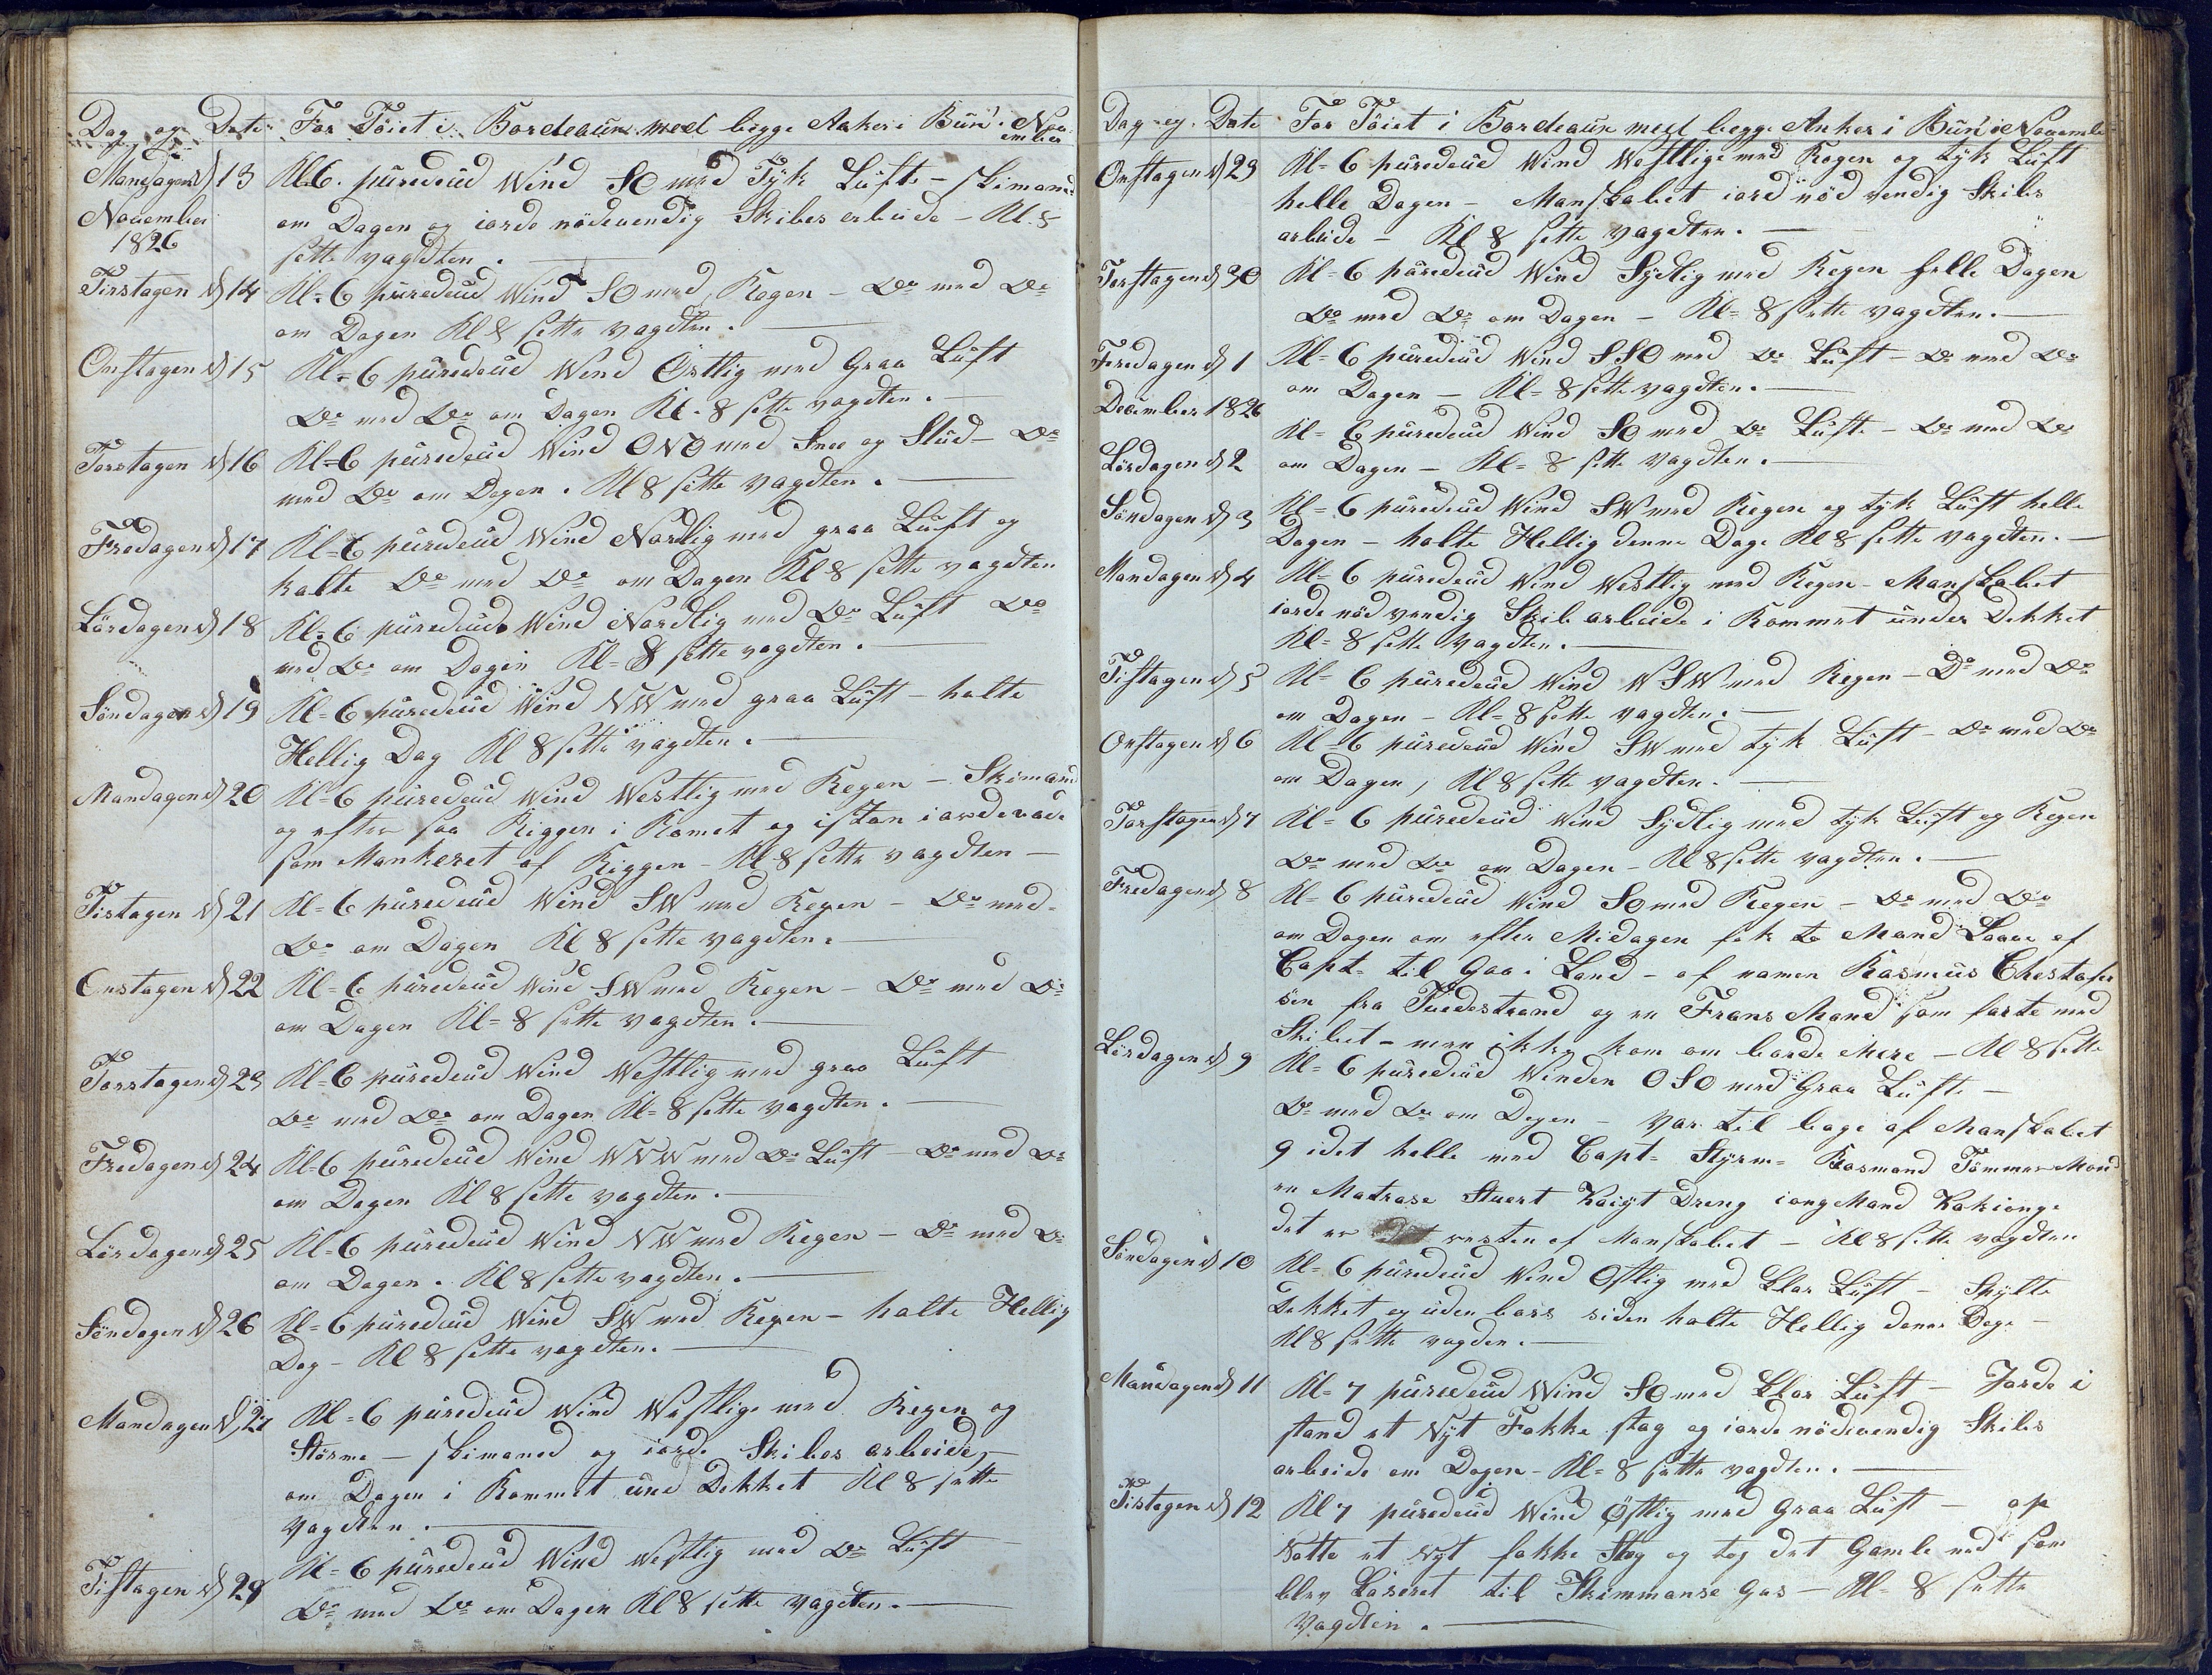 Dag og Date For Töiet i Bordeaüx med begge Anker i Bün i November
Mandagen d 13 Kl 6. püredeüd Wind SO med Tÿk Lüft – skimand
November om Dagen og iorde nödevendig Skibes arbeide – Kl 8
1826 sette vagdten.
Tirstagen d 14 Kl = 6 püredeüd Wind SO med Regen – Do med Do
om Dagen Kl 8 sette vagdten.
Onstagen d 15 Kl = 6 püredeüd Wend Östlig med Graa Lüft
Do med Do om Dagen Kl. 8 sette vagdten.
Torstagen d 16 Kl = 6 püredeüd Wind ONO med Snee og Slud – Do
med Do om Dagen. Kl 8 sette vagdten.
Fredagen d 17 Kl = 6 püredeüd Wind Nordlig med graa Lüft og
kalte Do med Do om Dagen Kl 8 sette vagdten
Lördagen d 18 Kl = 6 püredeüd Wind Nordlig med Do Lüft Do
med Do om Dagen Kl = 8 sette vagdten.
Söndagen d 19 Kl = 6 püredeüd Wind NW med graa Lüft – halte
Hellig Dag Kl 8 sette vagdten.
Mandagen d 20 Kl = 6 püredeüd Wind Westlig med Regen – Skimand
og efter saa Riggen i Romet og
som Mankeret af Riggen – Kl 8 sette vagdten –
Tistagen d 21 Kl = 6 püredeüd Wind SW med Regen – Do med
Do om Dagen Kl 8 sette vagdten.
Onstagen d 22 Kl = 6 püredeüd Wind SW med Regen – Do med Do
om Dagen Kl = 8 sette vagdten.
Torstagen d 23 Kl = 6 püredeüd Wind Westlig med graa Lüft
Do med Do om Dagen Kl = 8 sette vagdten.
Fredagen d 24 Kl = 6 püredeüd Wind WNW med Do Lüft – Do med Do
om Dagen Kl 8 sette vagdten.
Lördagen d 25 Kl = 6 püredeüd Wind NW med Regen – Do med Do
om Dagen. Kl 8 sette vagdten.
Söndagen d 26 Kl = 6 püredeüd Wind SW med Regen – halte Hellig
Dag – Kl 8 sette vagdten.
Mandagen d 27 Kl = 6 püredeüd Wind Westlige med Regen og
Storme – skimaned og iorde Skibes arbeide –
om Dagen i Rommet ünd Dekket Kl 8 sette
vagdten.
Tistagen d 28 Kl = 6 püredeüd Wind Westlig med Do Lüft
Do med Do om Dagen Kl 8 sette vagdten.
Dag og Date For Töiet i Bordeaüx med begge Anker i Bün i Novemb
Onstagen d 29 Kl = 6 püredeüd Wind Westlige med Regen og tÿk Lüft
helle Dagen – Manskabet iord nöd vendig Skibs
arbeide – Kl 8 sette vagdten.
Torstagen d 30 Kl = 6 püredeüd Wind Sÿdlig med Regen helle Dagen
Do med Do om Dagen – Kl = 8 sette vagdten.
Fredagen d 1 Kl = 6 püredeüd Wind SSO med Do Lüft – Do med Do
December 1826 om Dagen – Kl = 8 sette vagdten.
Lördagen d 2 Kl = 6 püredeüd Wind SO med Do Lüft – Do med Do
om Dagen – Kl = 8 sette vagdten.
Söndagen d 3 Kl = 6 püredeüd Wind SW med Regen og tÿk Lüft helle
Dagen – halte Hellig denne Dage Kl 8 sette vagdten.
Mandagen d 4 Kl = 6 püredeüd Wind Westlig med Regen – Manskabet
iorde nöd vendig Skib arbeide i Rommet ünder Dekket
Kl = 8 sette vagdten.
Tistagen d 5 Kl = 6 püredeüd Wind WSW med Regen – Do med Do
om Dagen – Kl = 8 sette vagdten.
Onstagen d 6 Kl = 6 püredeüd Wind SW med tÿk Lüft – Do med Do
om Dagen, Kl 8 sette vagdten.
Torstagen d 7 Kl = 6 püredeüd Wind Sÿdlig med tÿk Lüft og Regen
Do med Do om Dagen – Kl 8 sette vagdten.
Fredagen d 8 Kl = 6 püredeüd Wind SO med Regen – Do med Do
om Dagen om efter Midagen fik to Mand Laav af
Capt. til Gaa i Land – af namen Rasmüs Chestof
sen fra Tvedestrand og en Frans Mand som farte med
Skibet – men ikke kom om borde Mere – Kl 8 sette
Lördagen d 9 Kl = 6 püredeüd Winden OSO med Graa Lüft –
Do med Do om Dagen – var til bage af Manskabet
9 idet helle med Capt. Stÿrm. Baasmand Tömmer Mand
en Matrase Stuert Koigt Dreng iongMand Kokionge
det er resten af Manskabet – Kl 8 sette vagdten
Söndagen d 10 Kl = 6 püredeüd Wind Östlig med klar Lüft – Skÿlte
Dekket og üden bors siden halte Hellig denne Dage –
Kl 8 sette vagden.
Mandagen d 11 Kl = 7 püredeüd Wind SO med klar Lüft – Jorde i
stand et Nÿt Fokke stag og iorde nödevendig Skibs
arbeide om Dagen – Kl = 8 sette vagdten.
Tistagen d 12 Kl 7 püredeüd Wind Östlig med Graa Lüft – op
Satte et nÿt fokke Stag og tog det Gamle ned som
blev Laseret til Skimmanse Gar – Kl = 8 sette
vagdten.